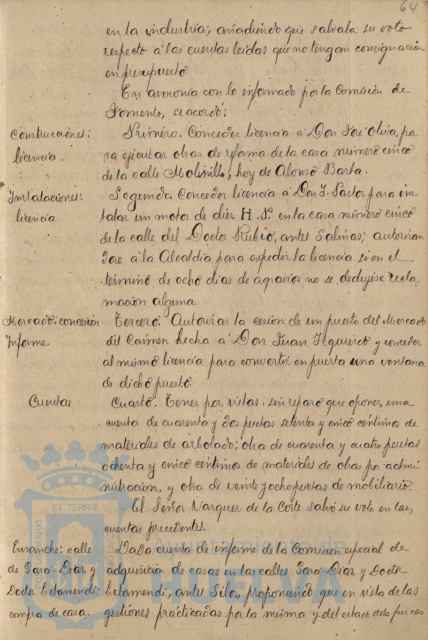 64
en la industria; añadiendo que salvaba su voto
respecto á las cuentas leidas que no tengan consignación
en presupuesto
En armonia con lo informado por la Comisión de
Fomento, se acordó:
Construcciones:
licencia.
Primero. Conceder licencia á Don José Oliva, pa
ra ejecutar obras de reforma de la casa número cinco
de la calle Molinillo, hoy de Alonso Barba.
Instalaciones:
licencia
Segundo. Conceder licencia á Don J. Pastor para ins
talar un motor de diez H.P. en la casa número cinco
de la calle del Doctor Rubio, antes Salinas; autorizan
dose á la Alcaldia para expedir la licencia si en el
término de ocho dias de agravios no se dedujese recla
mación alguna
Mercado: concesión
Informe
Tercero. Autorizar la cesión de un puesto del Mercado
del Carmen hecha á Don Juan Izquierdo y conceder
al mismo licencia para convertir en puerta una ventana
de dicho puesto
Cuentas
Cuarto. Tener por vistas, sin reparo que oponer, una
cuenta de cuarenta y dos pesetas setenta y cinco céntimos de
materiales de arbolado; otra de cuarenta y cuatro pesetas
ochenta y cinco céntimos de materiales de obras por admi
nistración, y otra de veinte y ocho pesetas de mobiliario.
El Señor Marques de la Corte salvó su voto en las
cuentas precedentes.
Ensanche: calle
de Sara-Diaz y
Doctor Letamendi:
compra de casa.
Dada cuenta de informe de la Comisión especial de
adquisición de casas en las calles Sara-Diaz y Doctor
Letamendi, antes Silos, proponiendo que en vista de las
gestiones practicadas por la misma y del estado de la fincas
ET TERRÆ
Ayuntamiento de
HUELVA